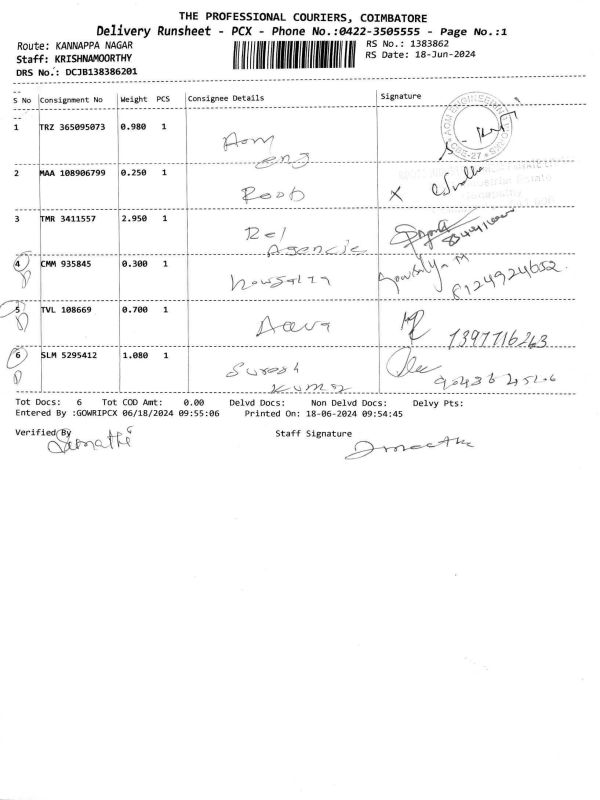 THE PROFESSIONAL COURIERS, COIMBATORE
Delivery Runsheet - PCX - Phone No.:0422-3505555 - Page No.:1
Route: KANNAPPA NAGAR
RS No.: 1383862
Staff: KRISHNAMOORTHY
RS Date: 18-Jun-2024
DRS No.: DCJB138386201
S No Consignment No Weight PCS Consignee Details Signature
1 TRZ 365095073 0.980 1 Aom
eng
2 MAA 108906799 0.250 1
3 TMR 3411557 2.950 1 Rel
Agencie
4 CMM 935845 0.300 1
8124924652
5 TVL 108669 0.700 1
1397716263
6 SLM 5295412 1.080 1 Suresh
Kumar
Tot Docs: 6 Tot COD Amt: 0.00 Delvd Docs: Non Delvd Docs: Delvy Pts:
Entered By :GOWRIPCX 06/18/2024 09:55:06 Printed On: 18-06-2024 09:54:45
Verified By Staff Signature